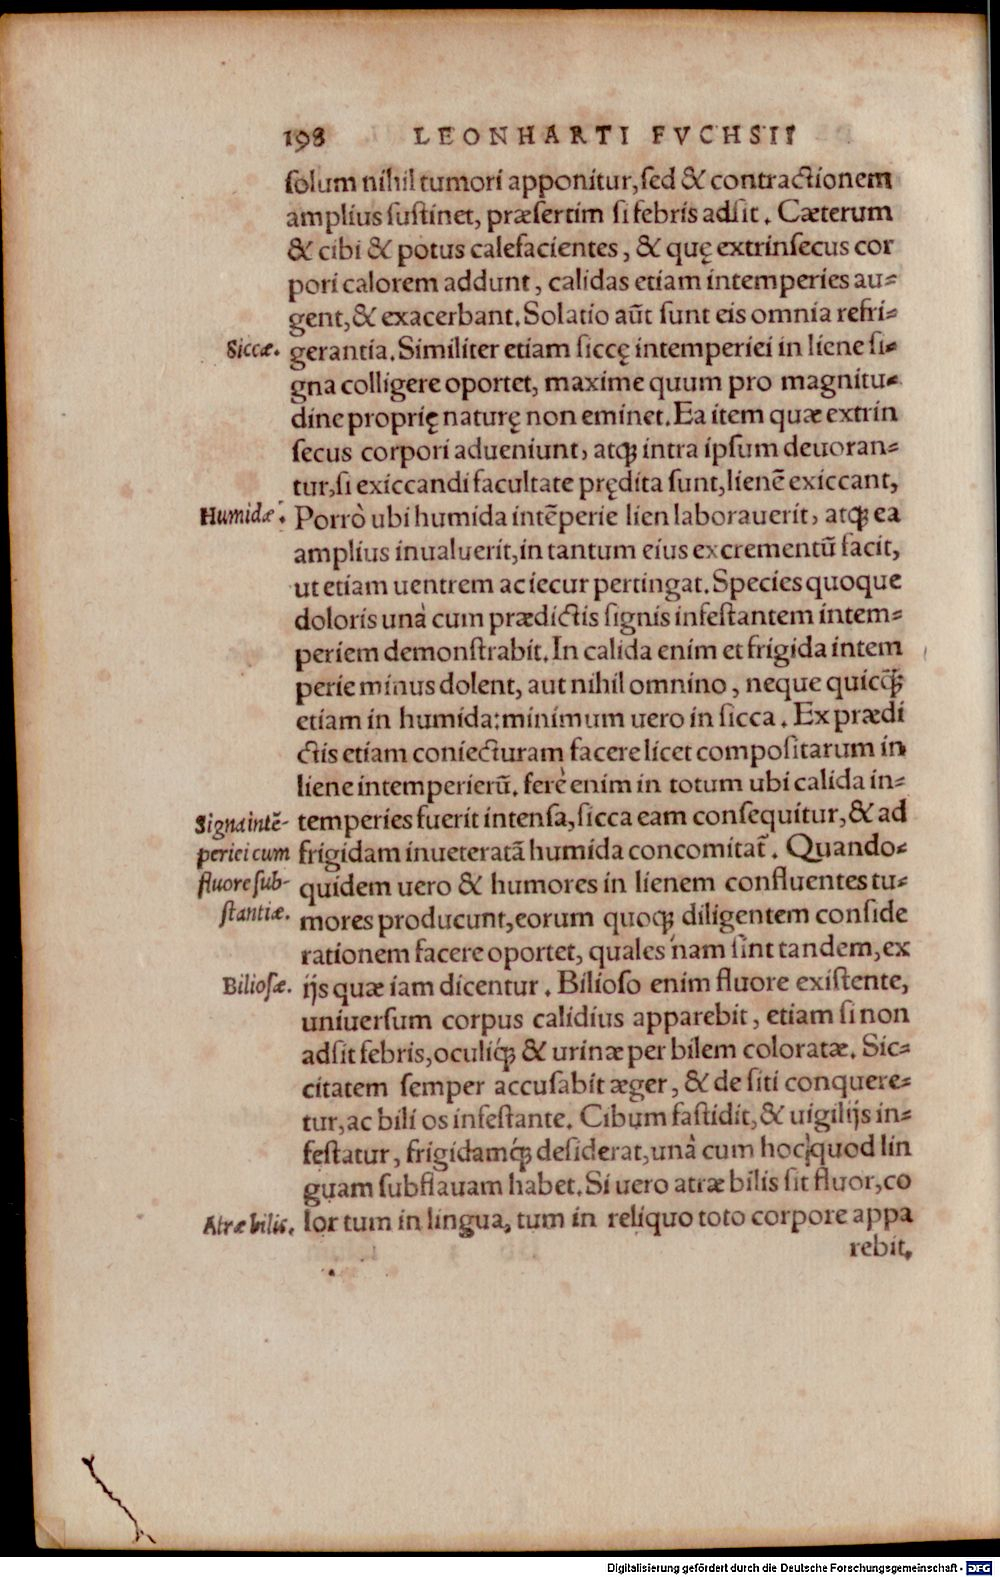 198 LEONHARTI FVCHSII
solum nihil tumori apponitur, sed & contractionem
amplius sustinet, præsertim si febris adsit. Cæterum
& cibi & potus calefacientes, & quę extrinsecus cor
pori calorem addunt, calidas etiam intemperies au=
gent, & exacerbant. Solatio aūt sunt eis omnia refri=
Siccæ. gerantia. Similiter etiam siccę intemperiei in liene si=
gna colligere oportet, maxime quum pro magnitu=
dine proprię naturę non eminet. Ea item quæ extrin
secus corpori adueniunt, atq; intra ipsum deuoran=
tur, si exiccandi facultate prędita sunt, lienē exiccant,
Humidæ. Porrò ubi humida intēperie lien laborauerit, atq; ea
amplius inualuerit, in tantum eius excrementū facit,
ut etiam uentrem ac iecur pertingat. Species quoque
doloris unà cum prædictis signis infestantem intem=
periem demonstrabit. In calida enim et frigida intem
perie minus dolent, aut nihil omnino, neque quicq̃;
etiam in humida: minimum uero in sicca. Ex prædi
ctis etiam coniecturam facere licet compositarum in
liene intemperierū. ferè enim in totum ubi calida in=
Signa intē- temperies fuerit intensa, sicca eam consequitur, & ad
periei cum frigidam inueteratā humida concomitat̃. Quando=
fluore sub- quidem uero & humores in lienem confluentes tu=
stantiæ. mores producunt, eorum quoq; diligentem conside
rationem facere oportet, quales nam sint tandem, ex
Biliosæ. ijs quæ iam dicentur. Bilioso enim fluore existente,
uniuersum corpus calidius apparebit, etiam si non
adsit febris, oculiq́; & urinæ per bilem coloratæ. Sic=
citatem semper accusabit æger, & de siti conquere=
tur, ac bili os infestante. Cibum fastidit, & uigilijs in=
festatur, frigidamq́; desiderat, unà cum hoc quod lin
guam subflauam habet. Si uero atræ bilis sit fluor, co
Atræ bilis. lor tum in lingua, tum in reliquo toto corpore appa
rebit.
Digitalisierung gefördert durch die Deutsche Forschungsgemeinschaft - DFG